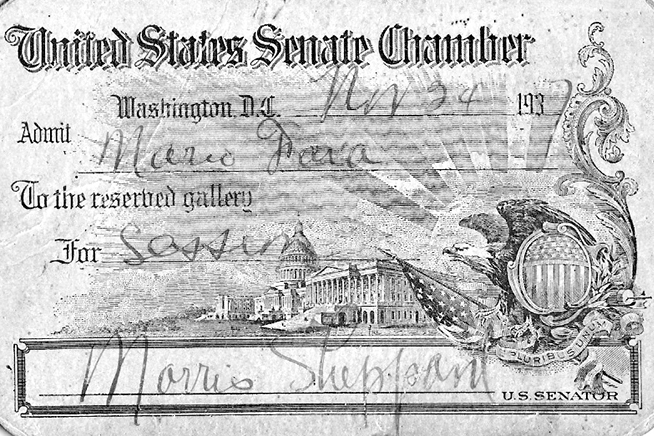 United States Senate Chamber
Washington, D.C. Nov 24 1937
Admit Mario Fava
To the reserved gallery
For Session
PLURIBUS UNUM
Morris Sheppard
U.S. SENATOR